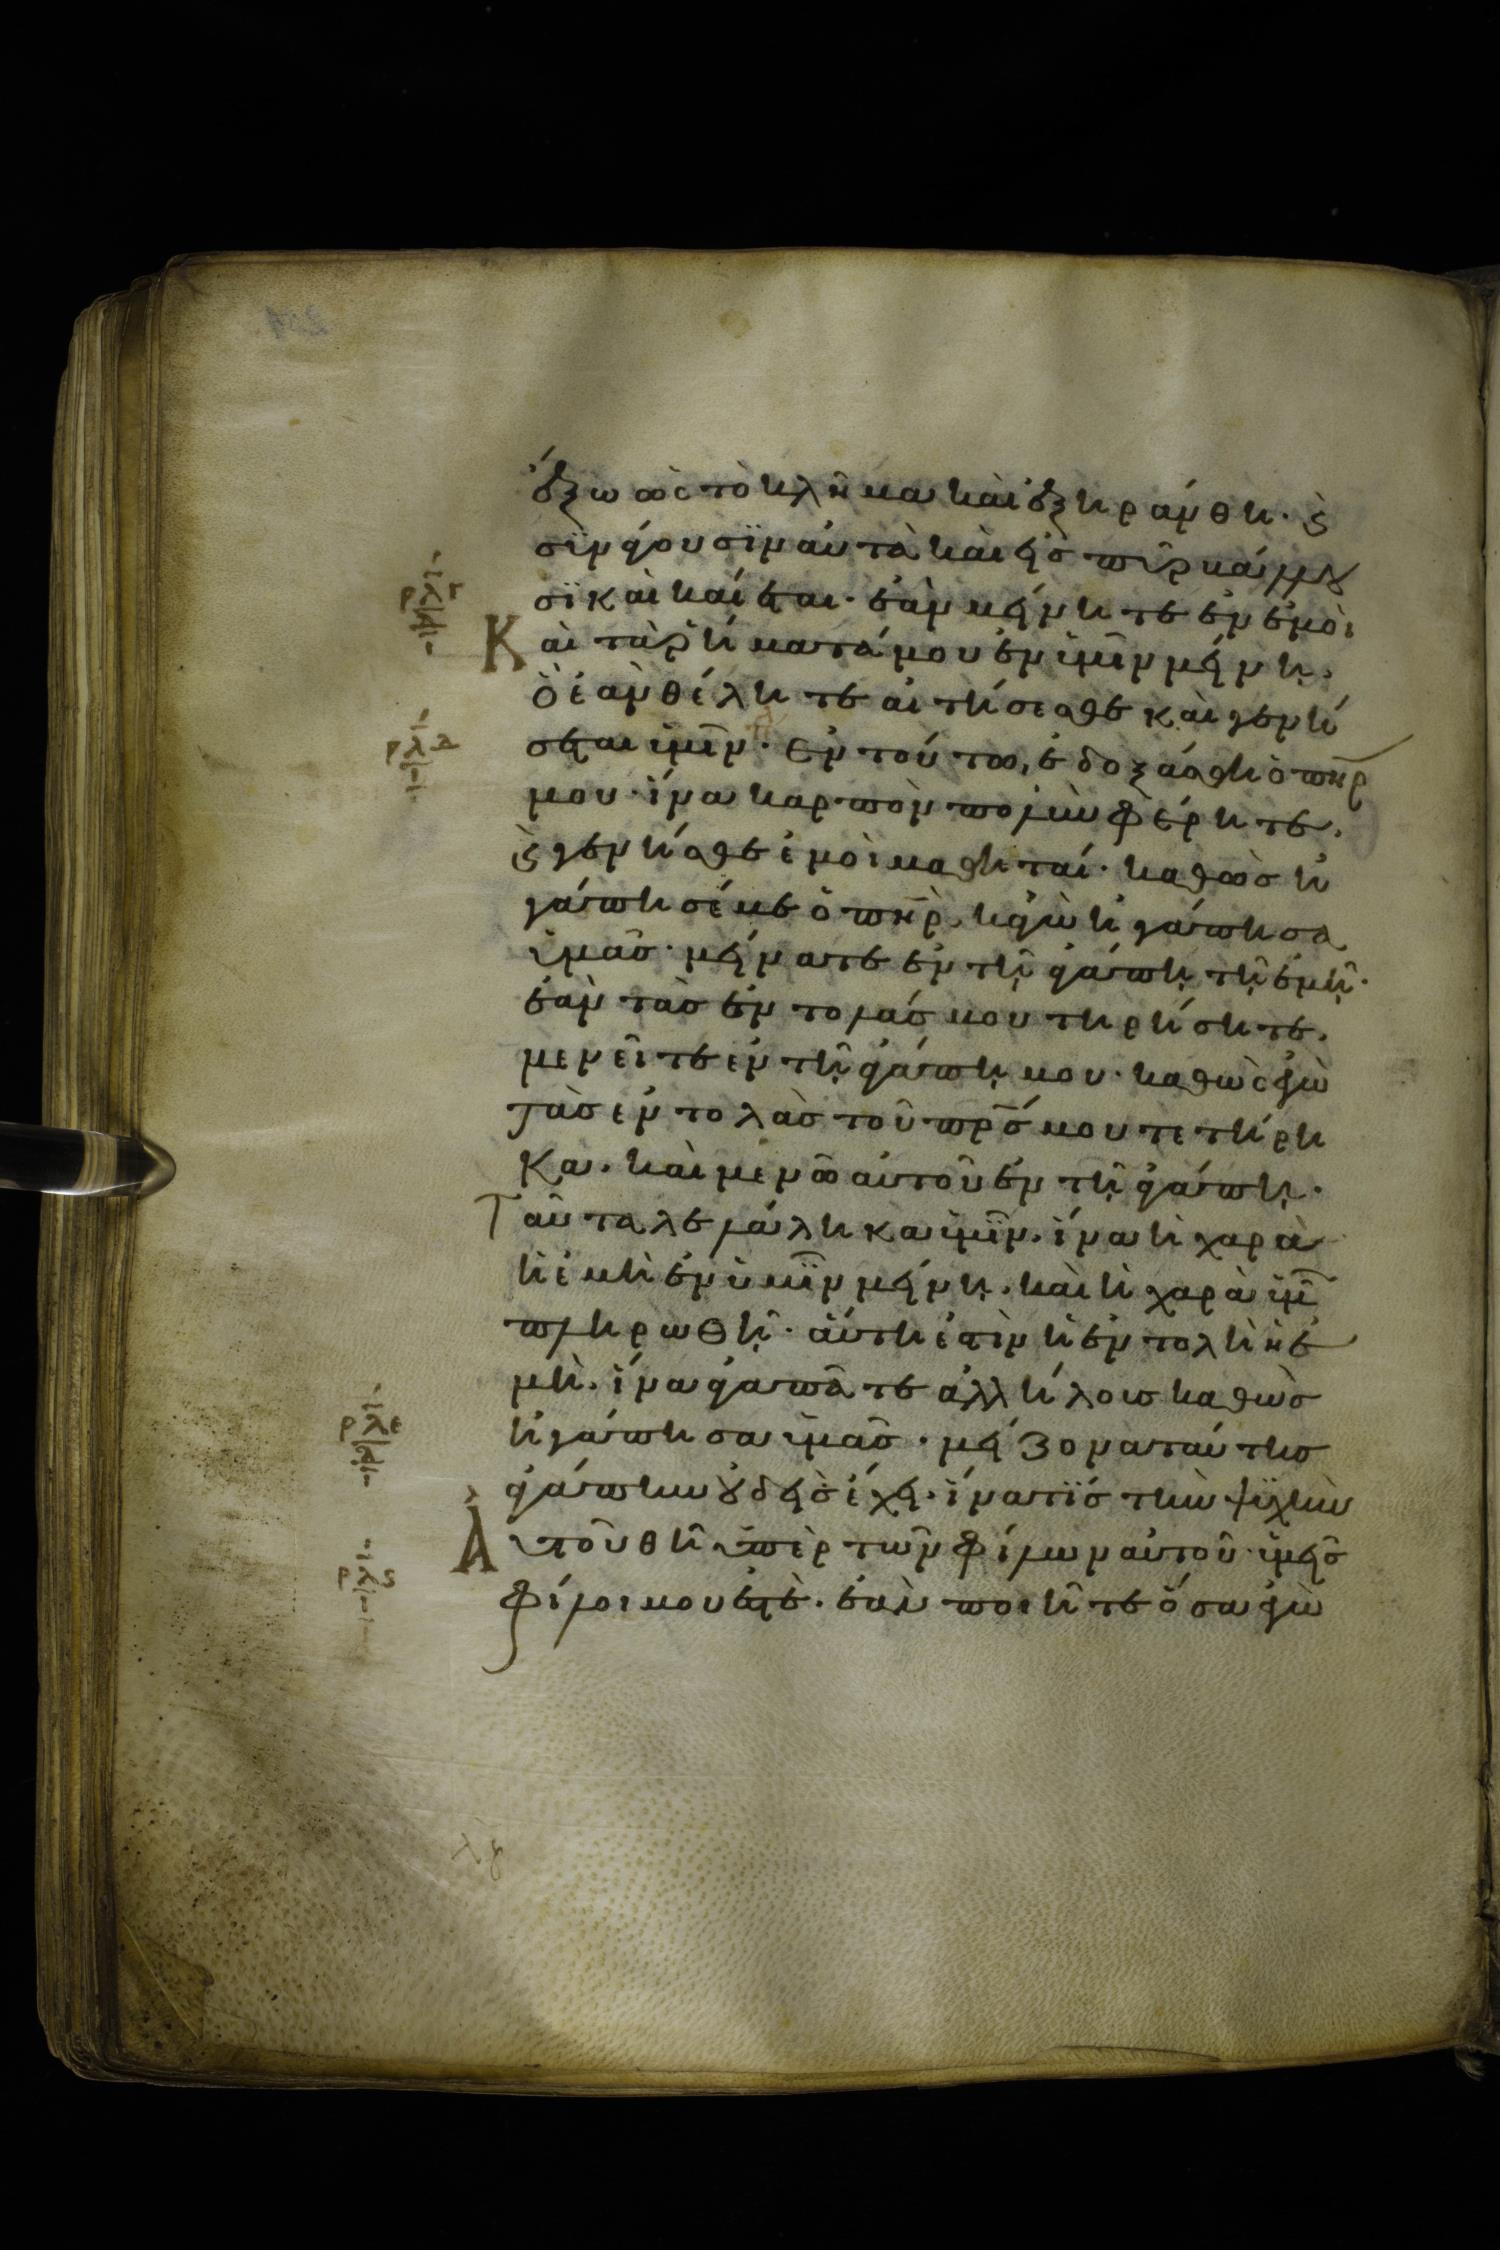 ἔξω ὡς τὸ κλῆμα καὶ ἐξηράνθη· ϗ
σϊνάγουσϊν αὐτὰ καὶ εἰς πῦρ βάλλου
σϊ καὶ καίεται· ἐὰν μείνητε ἐν ἐμοὶ
Καὶ τὰ ῥήματά μου ἐν ὑμῖν μείνῃ,
ὃ ἐὰν θέλητε αἰτήσεσθε καὶ γενή
σεται ὑμῖν· Ἐν τούτω, ἐδοξάσθη ὁ π̅η̅ρ̅
μου· ἵνα καρπὸν πολὺν φέρητε.
ϗ γενήσθε ἐμοὶ μαθηταί· καθὼς ἠ
γάπησέ με ὁ π̅η̅ρ̅, κἀγὼ ἠγάπησα
ὑμᾶς· μείνατε ἐν τῇ ἀγάπῃ τῇ ἐμῇ·
ἐὰν τὰς ἐντολάς μου τηρήσητε.
μενεῖτε ἐν τῇ ἀγάπῃ μου· καθὼς ἐγὼ
τὰς ἐντολὰς τοῦ π̅ρ̅ς̅ μου τετήρη
κα. καὶ μένω αὐτοῦ ἐν τῇ ἀγάπῃ.
Ταῦτα λελάληκα ὑμῖν. ἵνα ἡ χαρὰ
ἡ ἐμὴ ἐν ὑμῖν μείνῃ. καὶ ἡ χαρὰ ὑμῶ
πληρωθῇ· αὕτη ἐστὶν ἡ ἐντολὴ ἡ ἐ
μὴ. ἵνα ἀγαπᾶτε ἀλλήλοις καθὼς
ἠγάπησα ὑμᾶς· μείζονα ταύτης
ἀγάπην οὐδεὶς ἔχει· ἵνα τϊς τὴν ψϋχὴν
Αὐτοῦ θῇ ὑπὲρ τῶν φίλων αὐτοῦ· ὑμεῖς
φίλοι μου ἐστὲ. ἐὰν ποιῆτε ὅσα ἐγὼ
ρλγ
ρλδ
ρλε
ρλς